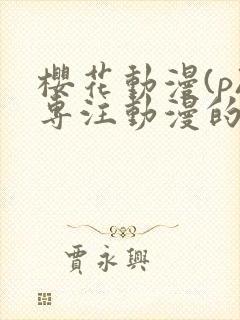 櫻花動漫(p
專注動漫的
賈永興